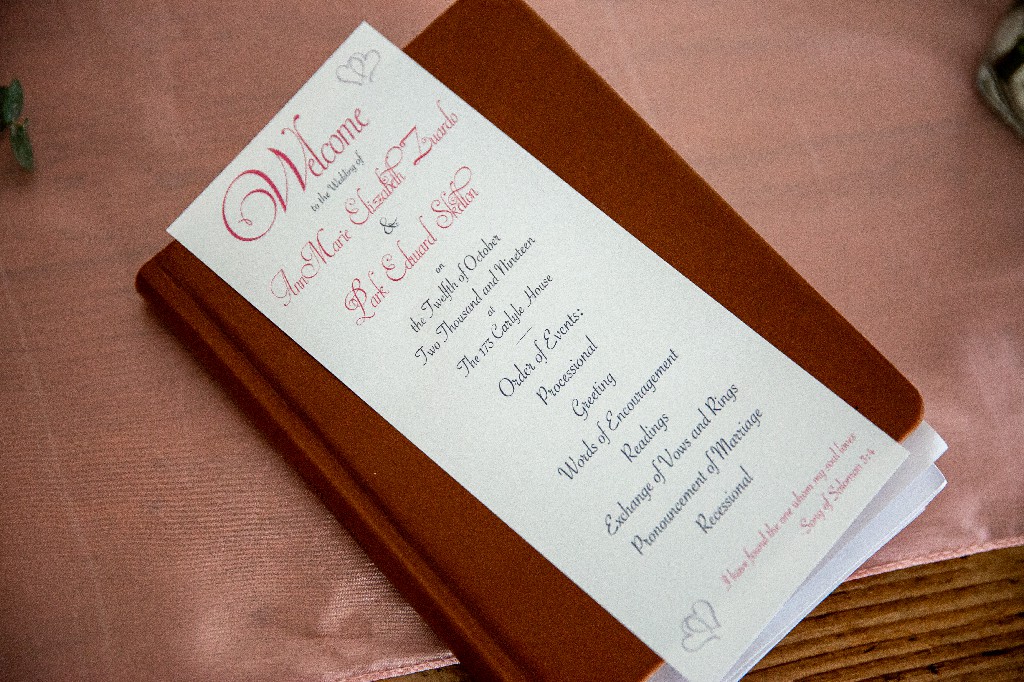 Welcome
to the Wedding of
AnnMarie Elizabeth Zuardo
&
Park Edward Skelton
on
the Twelfth of October
Two Thousand and Nineteen
at
The 173 Carlyle House
Order of Events:
Processional
Greeting
Words of Encouragement
Readings
Exchange of Vows and Rings
Pronouncement of Marriage
Recessional
I have found the one whom my soul loves
Song of Solomon 3:4